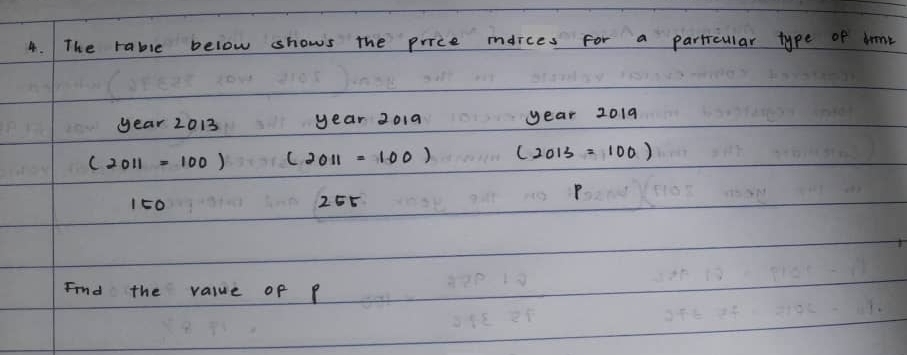 4. The table below shows the price indices for a particular type of drink
year 2013 year 2019 year 2019
(2011 = 100) (2011 = 100) (2013 = 100)
150 255 P
Find the value of p